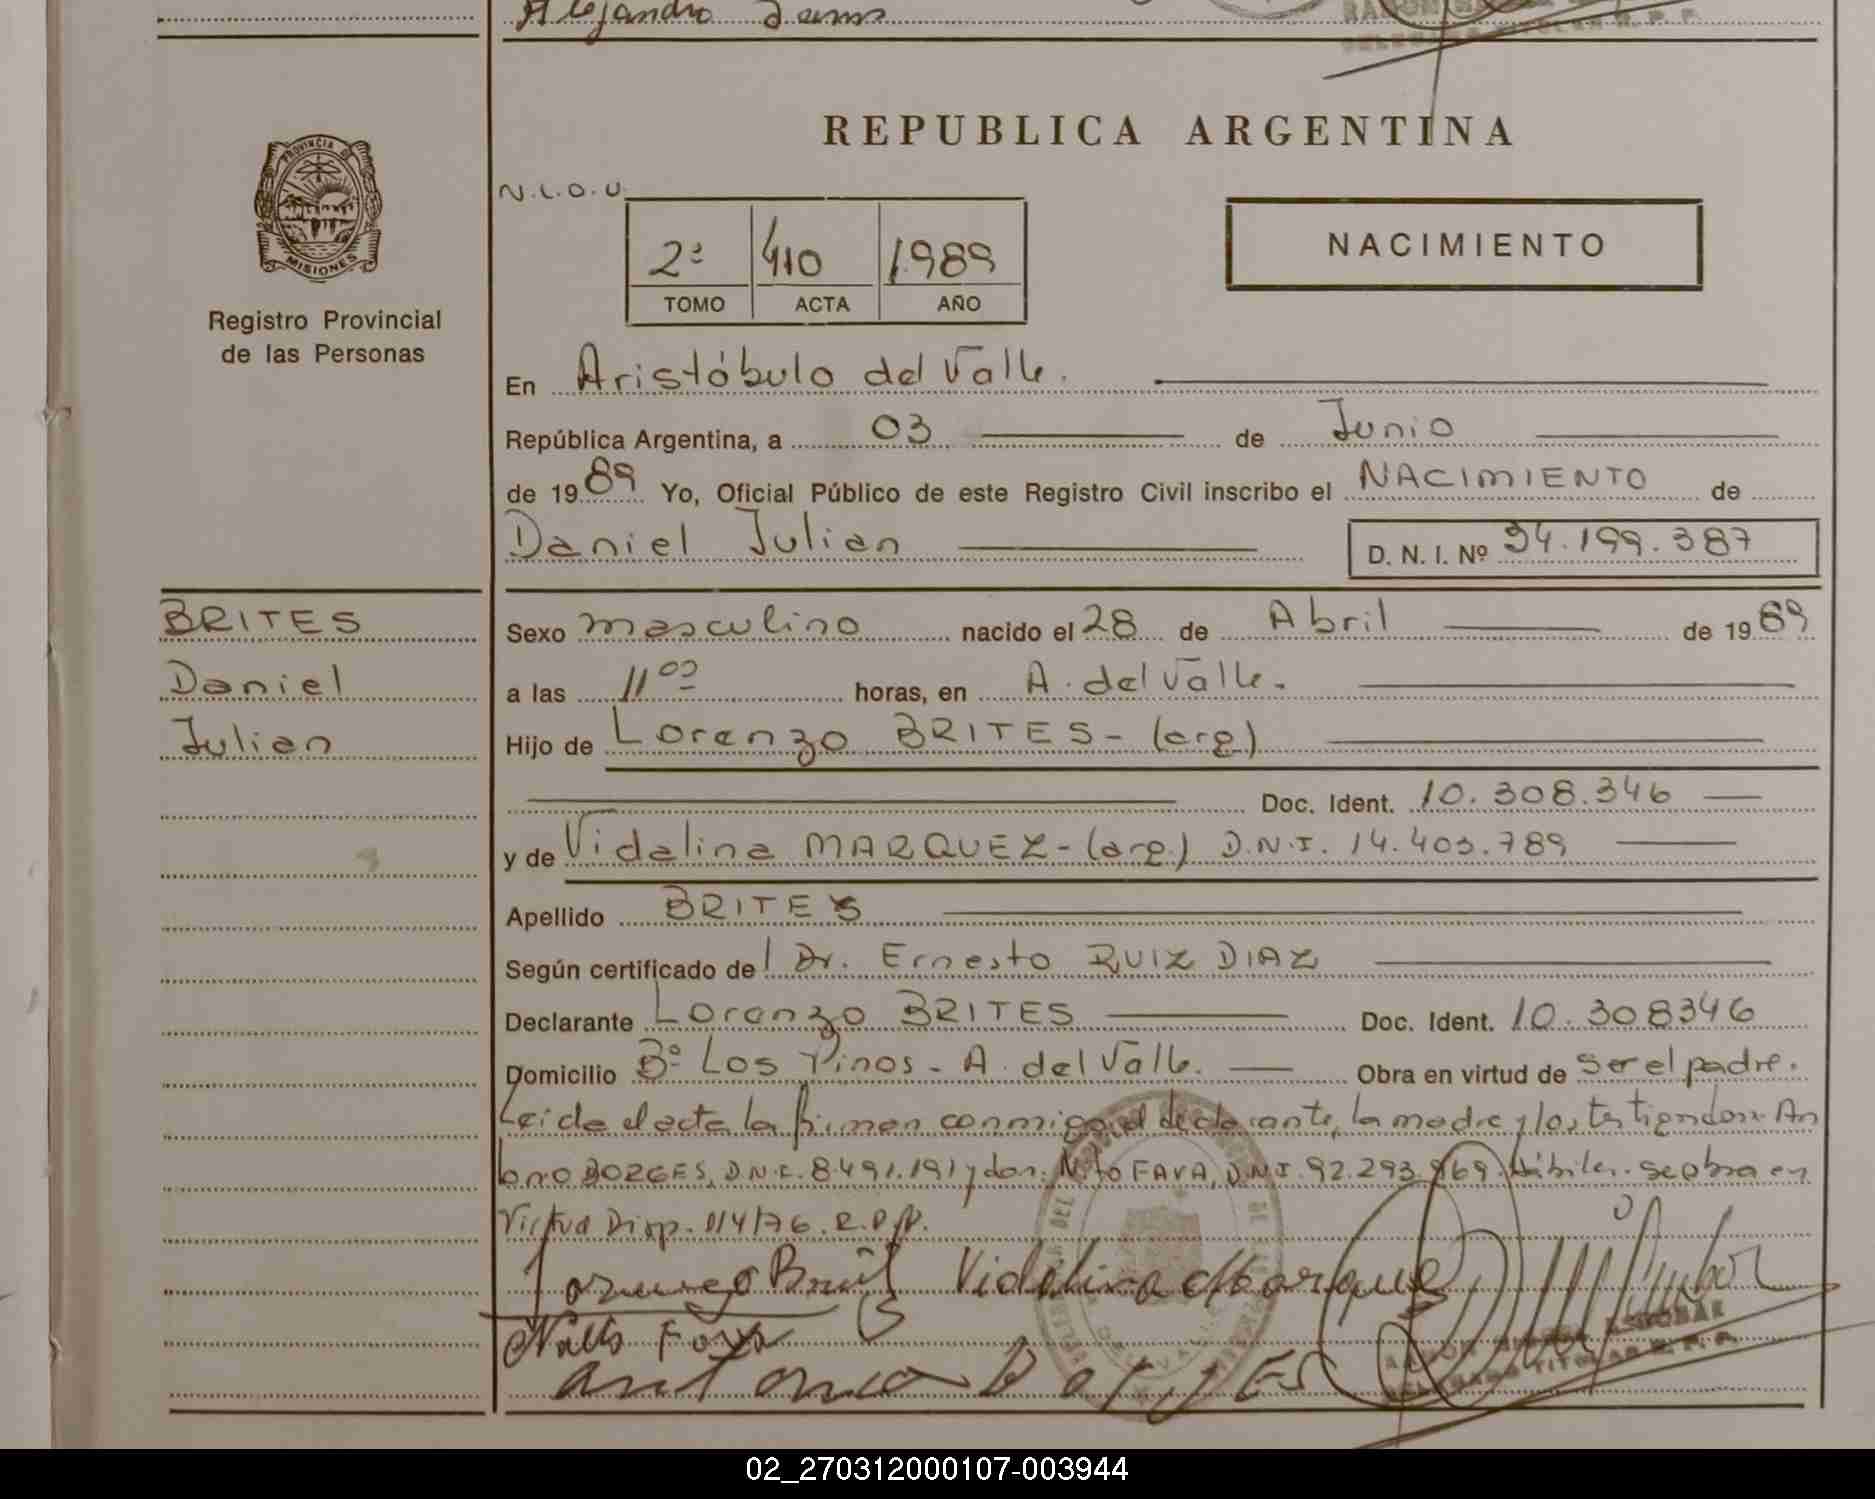 Alejandro
REPUBLICA ARGENTINA
PROVINCIA DE
MISIONES
Registro Provincial
de las Personas
N.L.O.U.
2ª 410 1989
TOMO ACTA AÑO
NACIMIENTO
En Aristóbulo del Valle.
República Argentina, a 03 de Junio
de 1989 Yo, Oficial Público de este Registro Civil inscribo el NACIMIENTO de
Daniel Julian D. N. I. Nº 34.199.387
BRITES
Daniel
Julian
Sexo masculino nacido el 28 de Abril de 1989
a las 11 00 horas, en A. del Valle.
Hijo de Lorenzo BRITES - (arg)
Doc. Ident. 10.308.346
y de Vidalina MARQUEZ - (arg.) D.N.I. 14.403.789
Apellido BRITES
Según certificado de Dr. Ernesto RUIZ DIAZ
Declarante Lorenzo BRITES Doc. Ident. 10.308346
Domicilio Bº Los Pinos - A. del Valle. Obra en virtud de ser el padre.
Leida el acta la firman conmigo el declarante, la madre y los testigos don: An
tonio BORGES, D.N.I. 8.491.191 y don: FAVA, D.N.I. 92.293.969. Hábiles. Se obra en
Virtud Disp. 114/76. R.P.P.
Vidalina Marquez
Fava
Antonio Borges
ESCOBAR
DELEGADO TITULAR R.P.P.
02_270312000107-003944